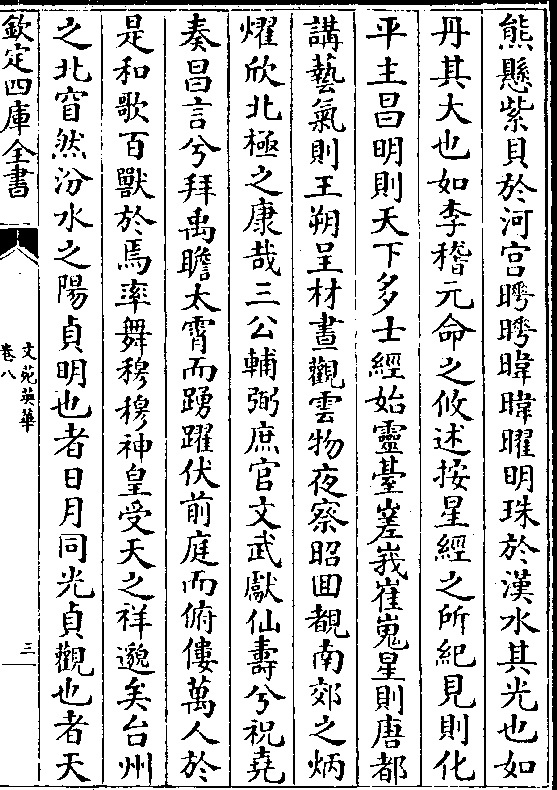 熊懸紫貝於河宫㬇㬇暐暐曜明珠於漢水其光也如
丹其大也如李稽元命之攸述按星經之所紀見則化
平主昌明則天下多士經始靈臺嵳峩崔嵬星則唐都
講藝氣則王朔呈材晝觀雲物夜察昭囬覩南郊之炳
燿欣北極之康哉三公輔弼庶官文武獻仙壽兮祝堯
奏昌言兮拜禹瞻太霄而踴躍伏前庭而俯僂萬人於
是和歌百獸於焉率舞穆穆神皇受天之祥邈矣台州
之北窅然汾水之陽貞明也者日月同光貞觀也者天
欽定四庫全書
文苑英華
卷八
三